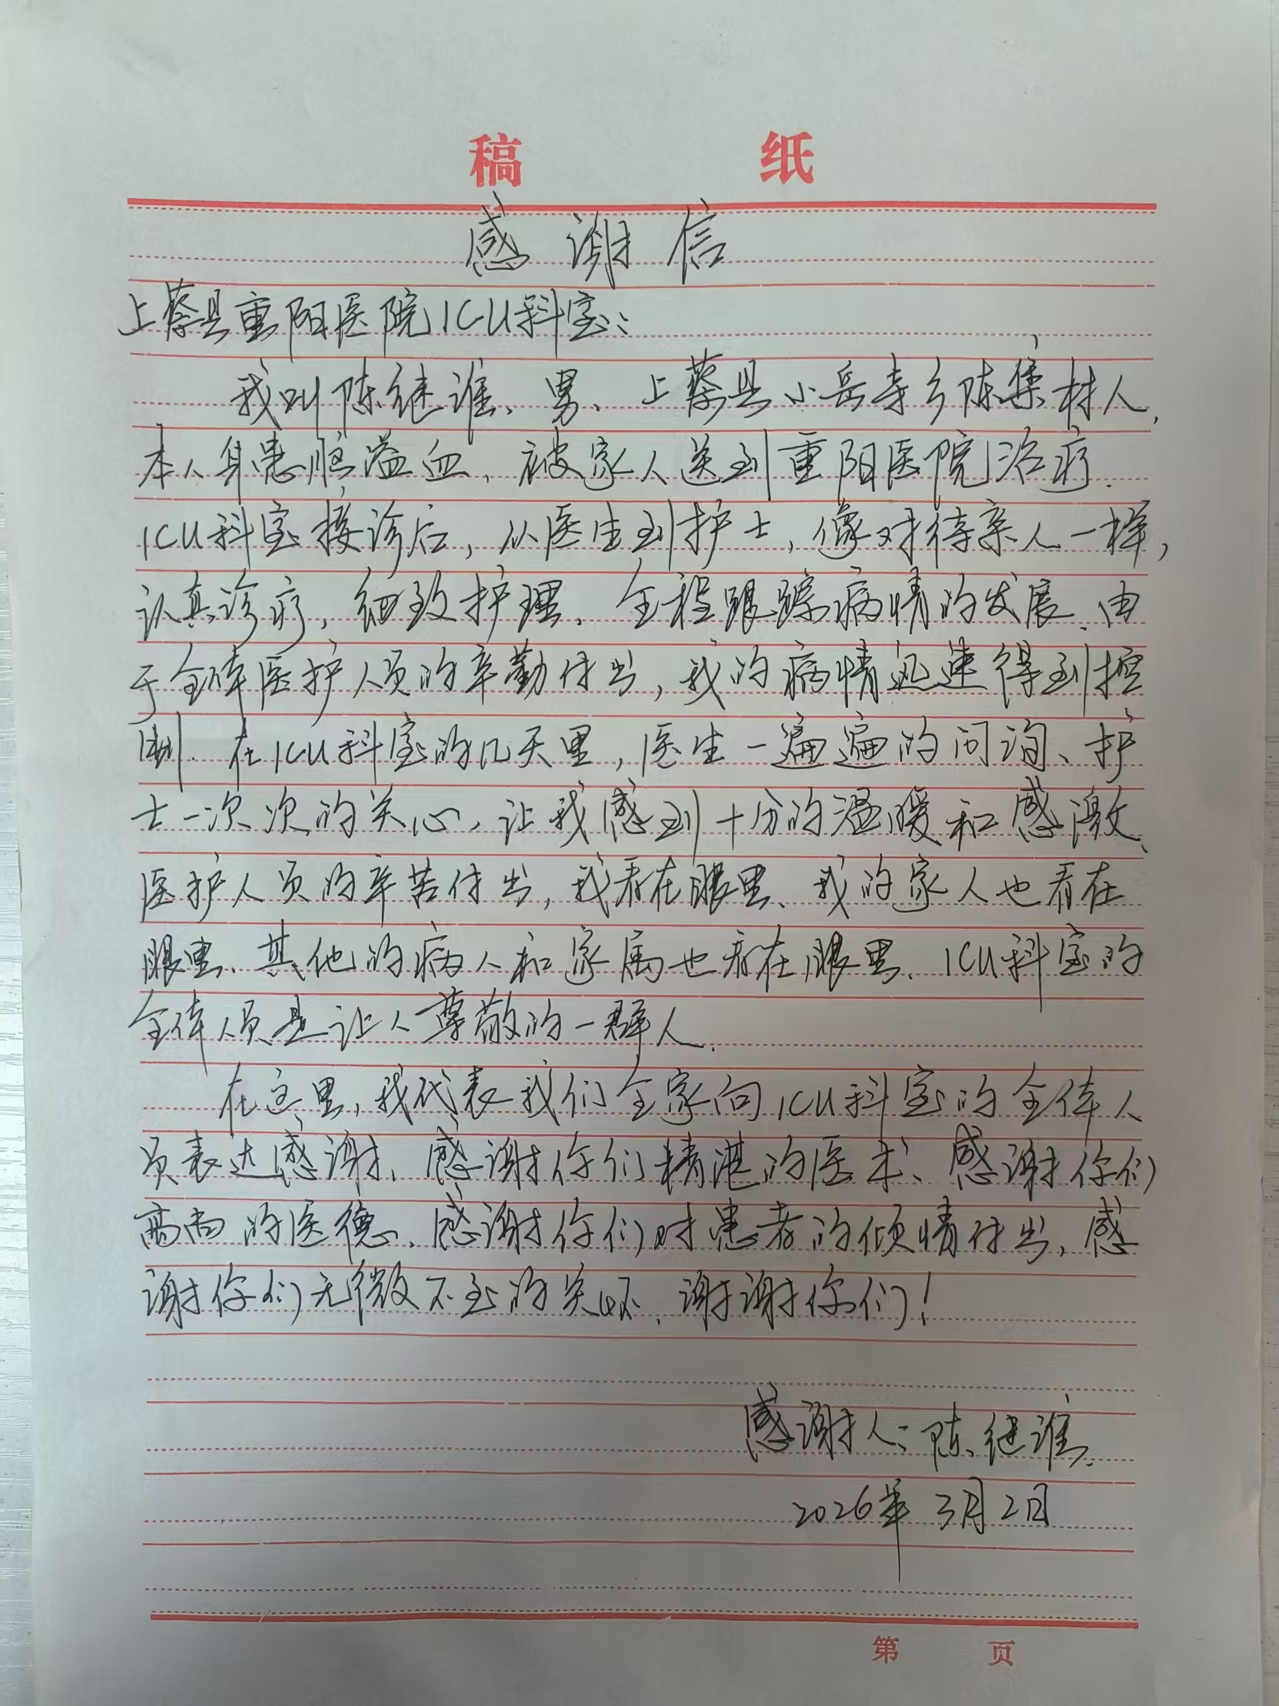 稿 纸
感谢信
上蔡县重阳医院ICU科室:
我叫陈继谁、男、上蔡县小岳寺乡陈集村人,
本人身患脑溢血,被家人送到重阳医院治疗.
ICU科室接诊后,从医生到护士,像对待亲人一样,
认真诊疗,细致护理.全程跟踪病情的发展.由
于全体医护人员的辛勤付出,我的病情迅速得到控
制.在ICU科室的几天里,医生一遍遍的问询、护
士一次次的关心,让我感到十分的温暖和感激.
医护人员的辛苦付出,我看在眼里、我的家人也看在
眼里.其他的病人和家属也看在眼里.ICU科室的
全体人员是让人尊敬的一群人.
在这里,我代表我们全家向ICU科室的全体人
员表达感谢.感谢你们精湛的医术、感谢你们
高尚的医德.感谢你们对患者的倾情付出,感
谢你们无微不至的关怀.谢谢你们!
感谢人:陈继谁.
2026年3月2日
第 页